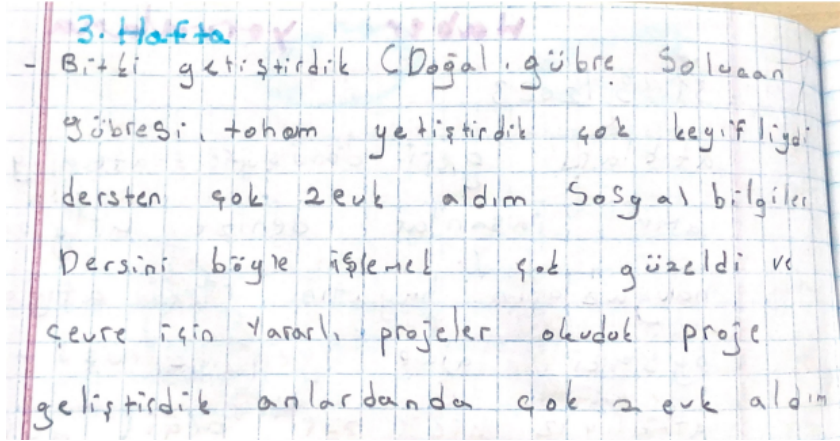 3. Hafta
- Bitki yetiştirdik (Doğal. gübre Solucan
gübresi, tohom yetiştirdik çok keyifliydi
dersten çok zevk aldım Sosyal bilgiler
Dersini böyle işlemek çok güzeldi ve
çevre için Yararlı projeler okuduk proje
geliştirdik onlardanda çok zevk aldım